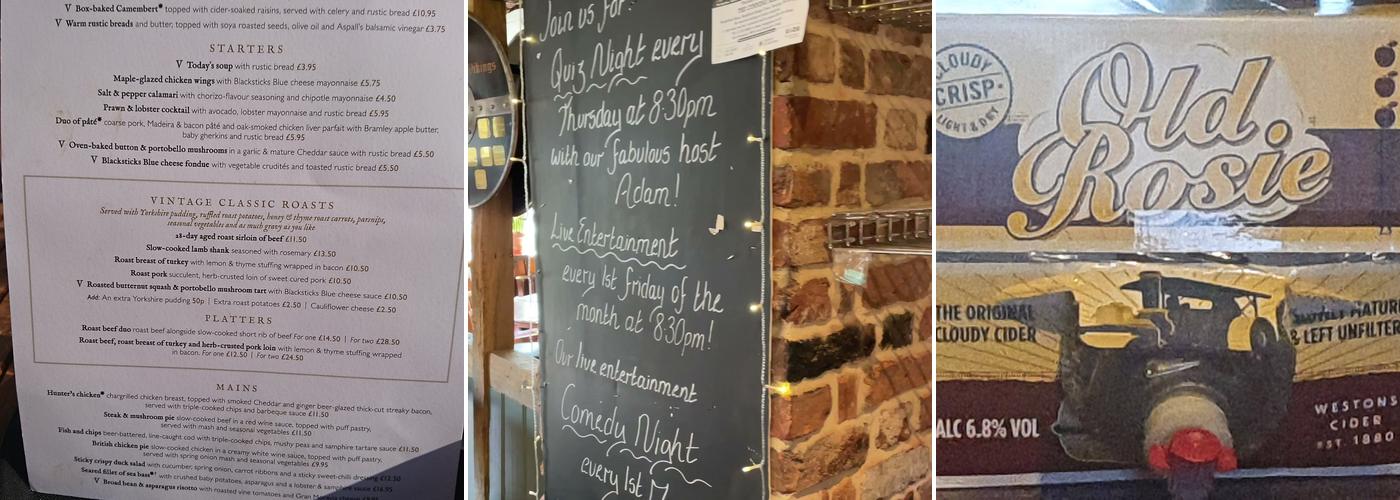 V Box-baked Camembert* topped with cider-soaked raisins, served with celery and rustic bread £10.95
V Warm rustic breads and butter, topped with soya roasted seeds, olive oil and Aspall's balsamic vinegar £3.75
STARTERS
V Today's soup with rustic bread £3.95
Maple-glazed chicken wings with Blacksticks Blue cheese mayonnaise £5.75
Salt & pepper calamari with chorizo-flavour seasoning and chipotle mayonnaise £4.50
Prawn & lobster cocktail with avocado, lobster mayonnaise and rustic bread £5.95
Duo of pâté* coarse pork, Madeira & bacon pâté and oak-smoked chicken liver parfait with Bramley apple butter,
baby gherkins and rustic bread £5.95
V Oven-baked button & portobello mushrooms in a garlic & mature Cheddar sauce with rustic bread £5.50
V Blacksticks Blue cheese fondue with vegetable crudités and toasted rustic bread £5.50
VINTAGE CLASSIC ROASTS
Served with Yorkshire pudding, ruffled roast potatoes, honey & thyme roast carrots, parsnips,
seasonal vegetables and as much gravy as you like
28-day aged roast sirloin of beef £11.50
Slow-cooked lamb shank seasoned with rosemary £13.50
Roast breast of turkey with lemon & thyme stuffing wrapped in bacon £10.50
Roast pork succulent, herb-crusted loin of sweet cured pork £10.50
V Roasted butternut squash & portobello mushroom tart with Blacksticks Blue cheese sauce £10.50
Add: An extra Yorkshire pudding 50p | Extra roast potatoes £2.50 | Cauliflower cheese £2.50
PLATTERS
Roast beef duo roast beef alongside slow-cooked short rib of beef For one £14.50 | For two £28.50
Roast beef, roast breast of turkey and herb-crusted pork loin with lemon & thyme stuffing wrapped
in bacon. For one £12.50 | For two £24.50
MAINS
Hunter's chicken* chargrilled chicken breast, topped with smoked Cheddar and ginger beer-glazed thick-cut streaky bacon,
served with triple-cooked chips and barbeque sauce £11.50
Steak & mushroom pie slow-cooked beef in a red wine sauce, topped with puff pastry,
served with mash and seasonal vegetables £11.50
Fish and chips beer-battered, line-caught cod with triple-cooked chips, mushy peas and samphire tartare sauce £11.50
British chicken pie slow-cooked chicken in a creamy white wine sauce, topped with puff pastry,
served with spring onion mash and seasonal vegetables £9.95
Sticky crispy duck salad with cucumber, spring onion, carrot ribbons and a sticky sweet-chilli dressing £12.50
Seared fillet of sea bass* with crushed baby potatoes, asparagus and a lobster & samphire sauce £16.95
V Broad bean & asparagus risotto with roasted vine tomatoes and Gran
Join us for
Quiz Night every
Thursday at 8:30pm
with our fabulous host
Adam!
Live Entertainment
every 1st friday of the
month at 8:30pm!
Our live entertainment
Comedy Night
every 1st
CLOUDY
CRISP
LIGHT & DRY
Old
Rosie
THE ORIGINAL
CLOUDY CIDER
& LEFT UNFILTE
ALC 6.8% VOL
WESTONS
CIDER
EST 1880